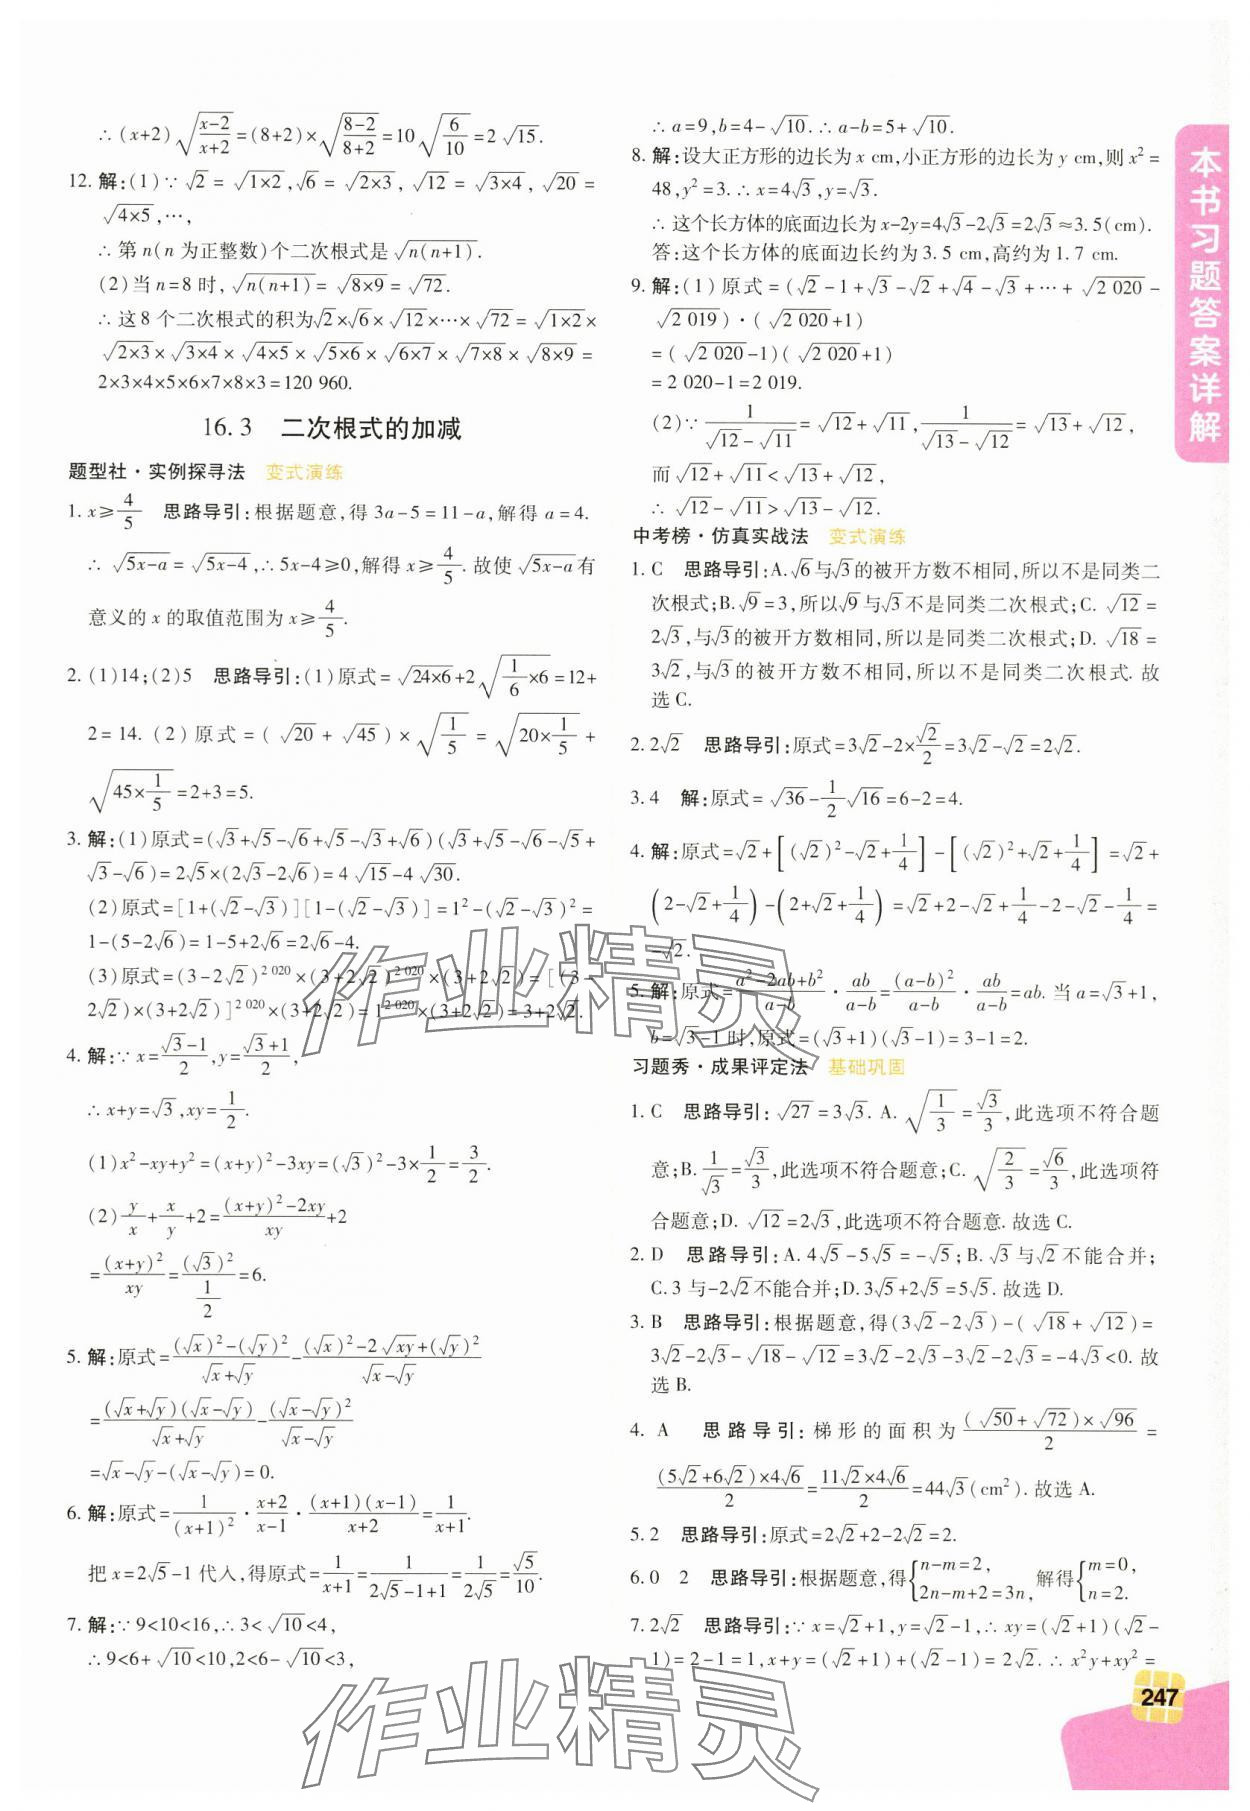 ∴ (x+2)√((x-2)/(x+2))=(8+2)×√((8-2)/(8+2))=10√(6/10)=2√15.
12. 解:(1)∵ √2=√(1×2),√6=√(2×3),√12=√(3×4),√20=
√(4×5),…,
∴ 第 n(n 为正整数)个二次根式是√(n(n+1)).
(2)当 n=8 时,√(n(n+1))=√(8×9)=√72.
∴ 这 8 个二次根式的积为√2×√6×√12×…×√72=√(1×2)×
√(2×3)×√(3×4)×√(4×5)×√(5×6)×√(6×7)×√(7×8)×√(8×9)=
2×3×4×5×6×7×8×3=120 960.
16.3 二次根式的加减
题型社·实例探寻法 变式演练
1. x≥4/5 思路导引:根据题意,得 3a-5=11-a,解得 a=4.
∴ √(5x-a)=√(5x-4),∴ 5x-4≥0,解得 x≥4/5. 故使√(5x-a)有
意义的 x 的取值范围为 x≥4/5.
2. (1)14;(2)5 思路导引:(1)原式=√(24×6)+2√(1/6×6)=12+
2=14. (2)原式=(√20+√45)×√(1/5)=√(20×1/5)+
√(45×1/5)=2+3=5.
3. 解:(1)原式=(√3+√5-√6+√5-√3+√6)(√3+√5-√6-√5+
√3-√6)=2√5×(2√3-2√6)=4√15-4√30.
(2)原式=[1+(√2-√3)][1-(√2-√3)]=1²-(√2-√3)²=
1-(5-2√6)=1-5+2√6=2√6-4.
(3)原式=(3-2√2)^2 020×(3+2√2)^2 020×(3+2√2)=[(3-
2√2)×(3+2√2)]^2 020×(3+2√2)=1^2 020×(3+2√2)=3+2√2.
4. 解:∵ x=(√3-1)/2,y=(√3+1)/2,
∴ x+y=√3,xy=1/2.
(1)x²-xy+y²=(x+y)²-3xy=(√3)²-3×1/2=3/2.
(2)y/x+x/y+2=((x+y)²-2xy)/xy+2
=(x+y)²/xy=(√3)²/(1/2)=6.
5. 解:原式=((√x)²-(√y)²)/(√x+√y)-((√x)²-2√(xy)+(√y)²)/(√x-√y)
=(√x+√y)(√x-√y)/(√x+√y)-(√x-√y)²/(√x-√y)
=√x-√y-(√x-√y)=0.
6. 解:原式=1/(x+1)²·(x+2)/(x-1)·(x+1)(x-1)/(x+2)=1/(x+1).
把 x=2√5-1 代入,得原式=1/(x+1)=1/(2√5-1+1)=1/(2√5)=√5/10.
7. 解:∵ 9<10<16,∴ 3<√10<4,
∴ 9<6+√10<10,2<6-√10<3,
∴ a=9,b=4-√10. ∴ a-b=5+√10.
8. 解:设大正方形的边长为 x cm,小正方形的边长为 y cm,则 x²=
48,y²=3. ∴ x=4√3,y=√3.
∴ 这个长方体的底面边长为 x-2y=4√3-2√3=2√3≈3.5(cm).
答:这个长方体的底面边长约为 3.5 cm,高约为 1.7 cm.
9. 解:(1)原式=(√2-1+√3-√2+√4-√3+…+√2 020-
√2 019)·(√2 020+1)
=(√2 020-1)(√2 020+1)
=2 020-1=2 019.
(2)∵ 1/(√12-√11)=√12+√11,1/(√13-√12)=√13+√12,
而√12+√11<√13+√12,
∴ √12-√11>√13-√12.
中考榜·仿真实战法 变式演练
1. C 思路导引:A.√6与√3的被开方数不相同,所以不是同类二
次根式;B.√9=3,所以√9与√3不是同类二次根式;C.√12=
2√3,与√3的被开方数相同,所以是同类二次根式;D.√18=
3√2,与√3的被开方数不相同,所以不是同类二次根式. 故
选 C.
2. 2√2 思路导引:原式=3√2-2×√2/2=3√2-√2=2√2.
3. 4 解:原式=√36-1/2√16=6-2=4.
4. 解:原式=√2+[(√2)²-√2+1/4]-[(√2)²+√2+1/4]=√2+
(2-√2+1/4)-(2+√2+1/4)=√2+2-√2+1/4-2-√2-1/4=
-√2.
5. 解:原式=(a²-2ab+b²)/(a-b)·ab/(a-b)=(a-b)²/(a-b)·ab/(a-b)=ab. 当 a=√3+1,
b=√3-1 时,原式=(√3+1)(√3-1)=3-1=2.
习题秀·成果评定法 基础巩固
1. C 思路导引:√27=3√3. A.√(1/3)=√3/3,此选项不符合题
意;B.1/√3=√3/3,此选项不符合题意;C.√(2/3)=√6/3,此选项符
合题意;D.√12=2√3,此选项不符合题意. 故选 C.
2. D 思路导引:A. 4√5-5√5=-√5;B.√3与√2不能合并;
C. 3 与-2√2不能合并;D. 3√5+2√5=5√5. 故选 D.
3. B 思路导引:根据题意,得(3√2-2√3)-(√18+√12)=
3√2-2√3-√18-√12=3√2-2√3-3√2-2√3=-4√3<0. 故
选 B.
4. A 思路导引:梯形的面积为(√50+√72)×√96/2=
(5√2+6√2)×4√6/2=11√2×4√6/2=44√3(cm²). 故选 A.
5. 2 思路导引:原式=2√2+2-2√2=2.
6. 0 2 思路导引:根据题意,得{n-m=2, 2n-m+2=3n, 解得{m=0, n=2.
7. 2√2 思路导引:∵ x=√2+1,y=√2-1,∴ xy=(√2+1)(√2-
1)=2-1=1,x+y=(√2+1)+(√2-1)=2√2. ∴ x²y+xy²=
本书习题答案详解
247
作业精灵
作业精灵